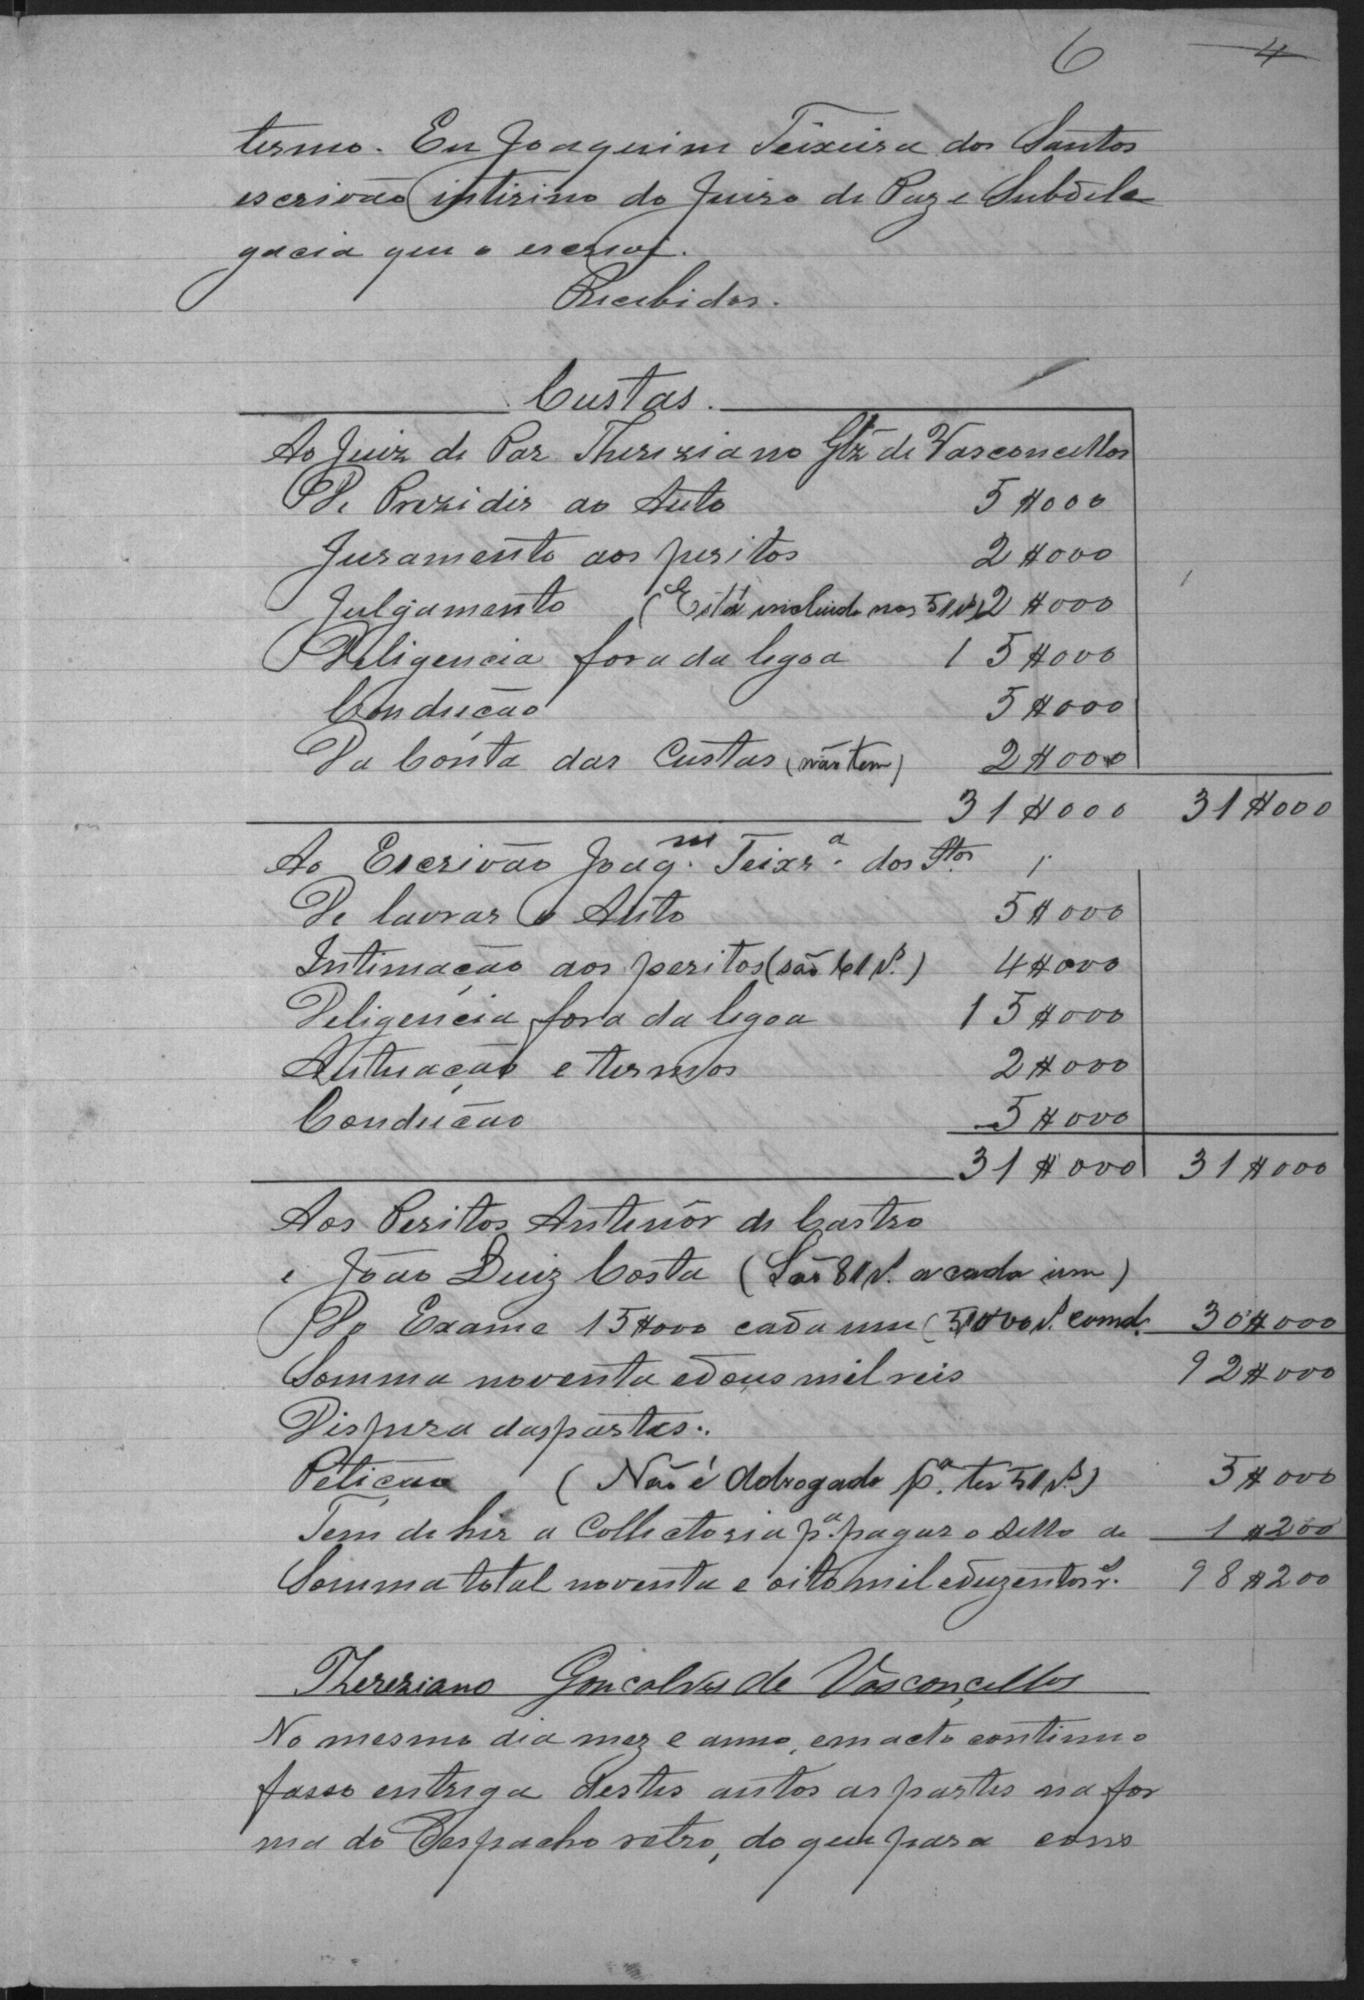 6 4
termo. Eu Joaquim Teixeira dos Santos
escrivão intirino do Juizo de Paz e Subdele
gacia que o escrevi.
Recebidos.
Custas.
Ao Juiz de Paz Thereziano Glz de Vasconcellos
De Prezidir ao Auto 5$000
Juramento aos peritos 2$000
Julgamento (Está incluido nos 5$) 2$000
Deligencia fora da legoa 15$000
Condução 5$000
Da Conta das Custas (não tem) 2$000
31$000 31$000
Ao Escrivão Joaq.m Teixr.a dos Stos.
De lavrar o Auto 5$000
Intimação aos peritos (são 6$) 4$000
Deligencia fora da legoa 15$000
Autuação e termos 2$000
Condução 5$000
31$000 31$000
Aos Peritos Antenôr de Castro
e João Luiz Costa (São 8$ a cada um)
Do Exame 15$000 cada um 30$000
Somma noventa e dous mil reis 92$000
Dispeza das partes.
Petição (Não é Advogado p.a ter 5$) 5$000
Tem de hir a Collectoria p.a pagar o sello de 1$200
Somma total noventa e oito mil e duzentos r.s 98$200
Thereziano Gonçalves de Vasconcellos
No mesmo dia mez e anno, em acto continuo
fasso entrega destes autos as partes na for
ma do Despacho retro, do que para cons